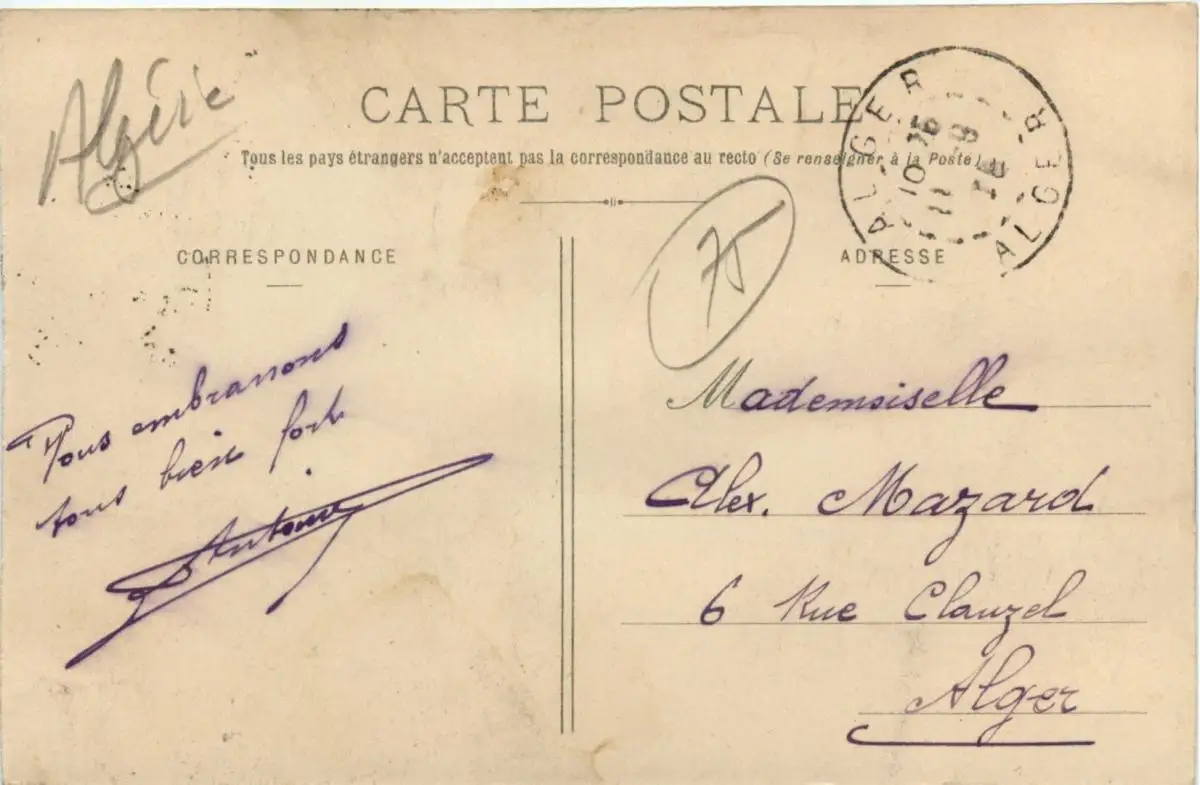 Algérie
CARTE POSTALE
Tous les pays étrangers n'acceptent pas la correspondance au recto (Se renseigner à la Poste)
ALGER ALGER
75
CORRESPONDANCE
ADRESSE
Vous embrassons
tous bien fort
Antoine
Mademoiselle
Alex. Mazard
6 Rue Clauzel
Alger